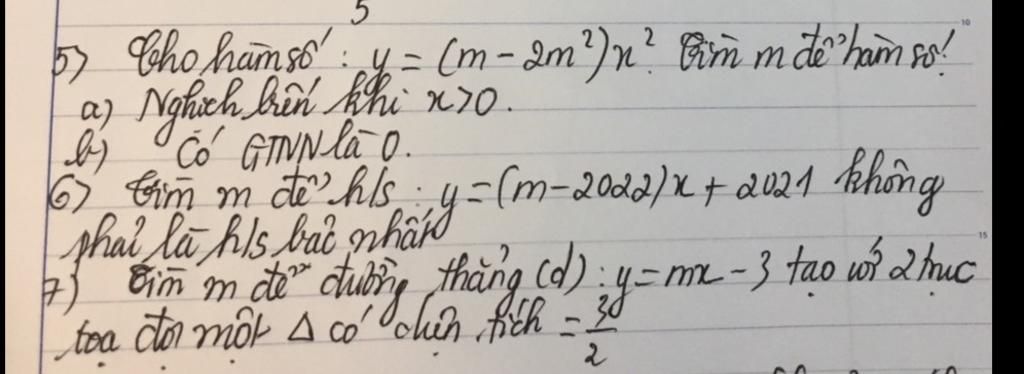 5
5) Cho hàm số : y = (m - 2m²)x². Tìm m để hàm số!
a) Nghịch biến khi x>0.
b) Có GTNN là 0.
6) Tìm m để h/s : y = (m - 2022)x + 2021 không
phải là h/s bậc nhất
7) Tìm m để đường thẳng (d) : y = mx - 3 tạo với 2 trục
tọa độ một Δ có diện tích = 3/2